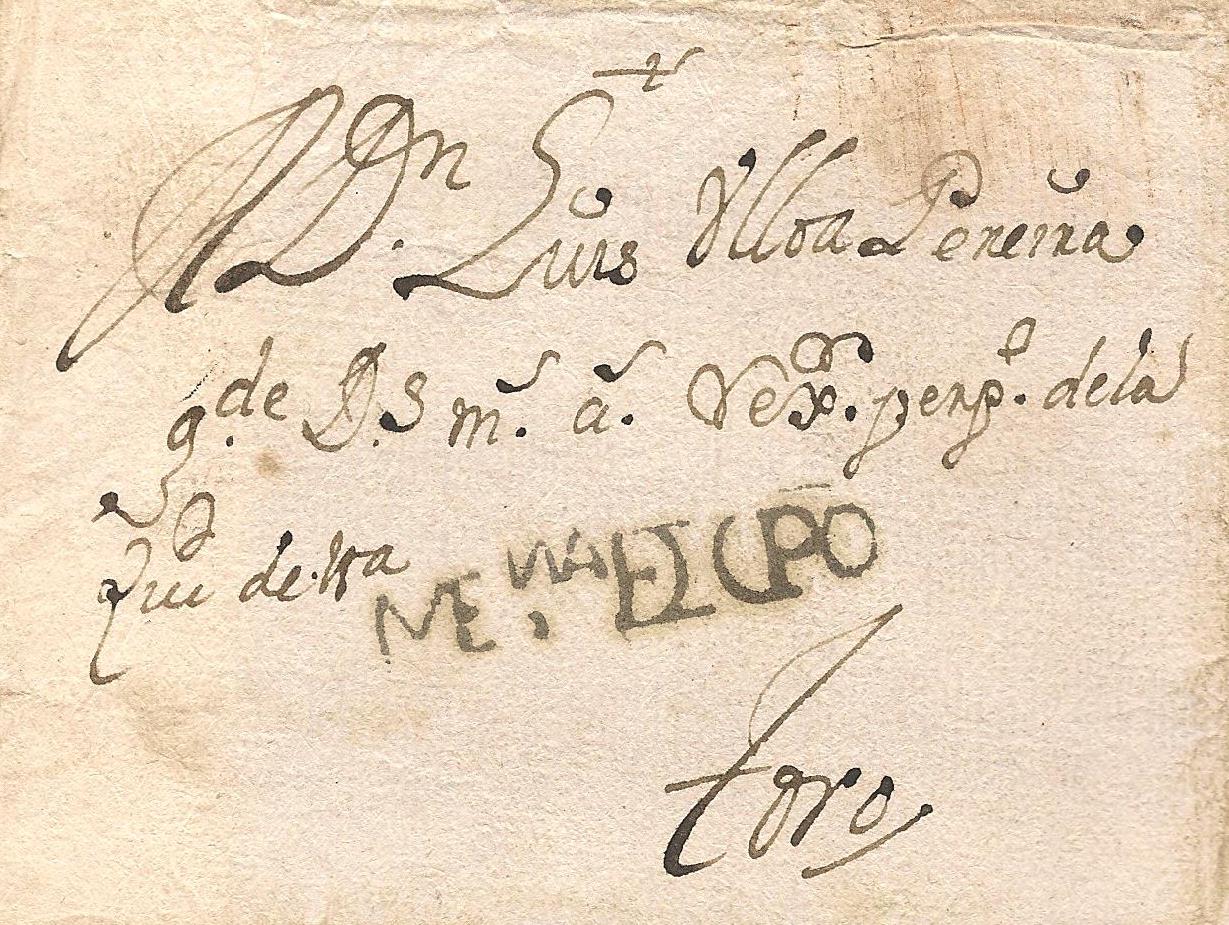 A Dn. Luis Ulloa Pereira
gde. D.s m.s a.s Rexr. perpo. de la
Ciud de
ME,NA DEL CPO
Toro